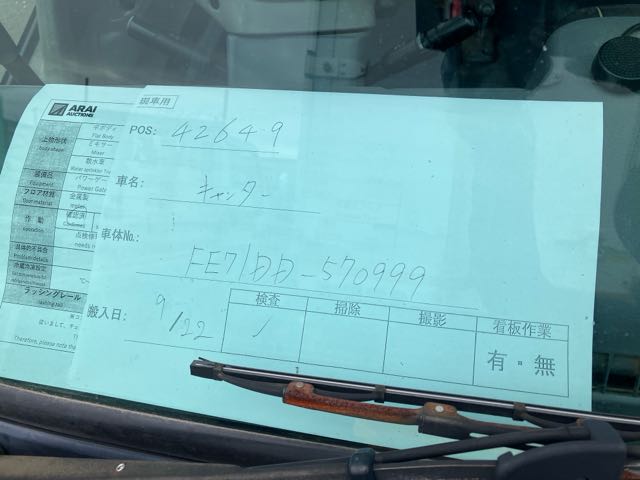 ARAI
AUCTIONS
現車用
POS: 42649
上物形状
body shape
平ボディ
Flat Body
ミキサー
Mixer
散水車
Water sprinkler
装備品
Equipment
パワーゲー
Power Gate
フロア材質
floor material
金属製
作動
operation
確認済
点検
needs
車名: キャンター
車体No.: FE71DD-570999
ラッシングレール
lashing rail
搬入日: 9/22
検査 掃除 撮影 看板作業
有・無
Therefore, please note the